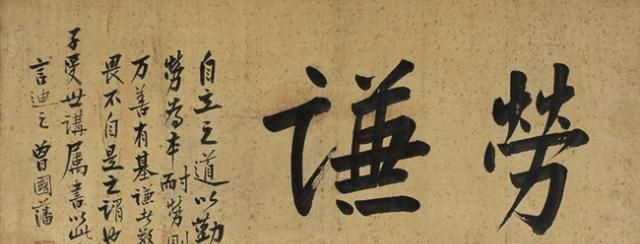 勞謙
自立之道以勤
勞為本耐勞則
万善有基謙者敬
畏不自是之謂也
子受世講属書以此
言迪之 曾國藩